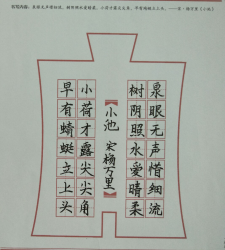 书写内容：泉眼无声惜细流，树阴照水爱晴柔。小荷才露尖尖角，早有蜻蜓立上头。——宋·杨万里《小池》
泉眼无声惜细流
树阴照水爱晴柔
小池 宋 杨万里
小荷才露尖尖角
早有蜻蜓立上头